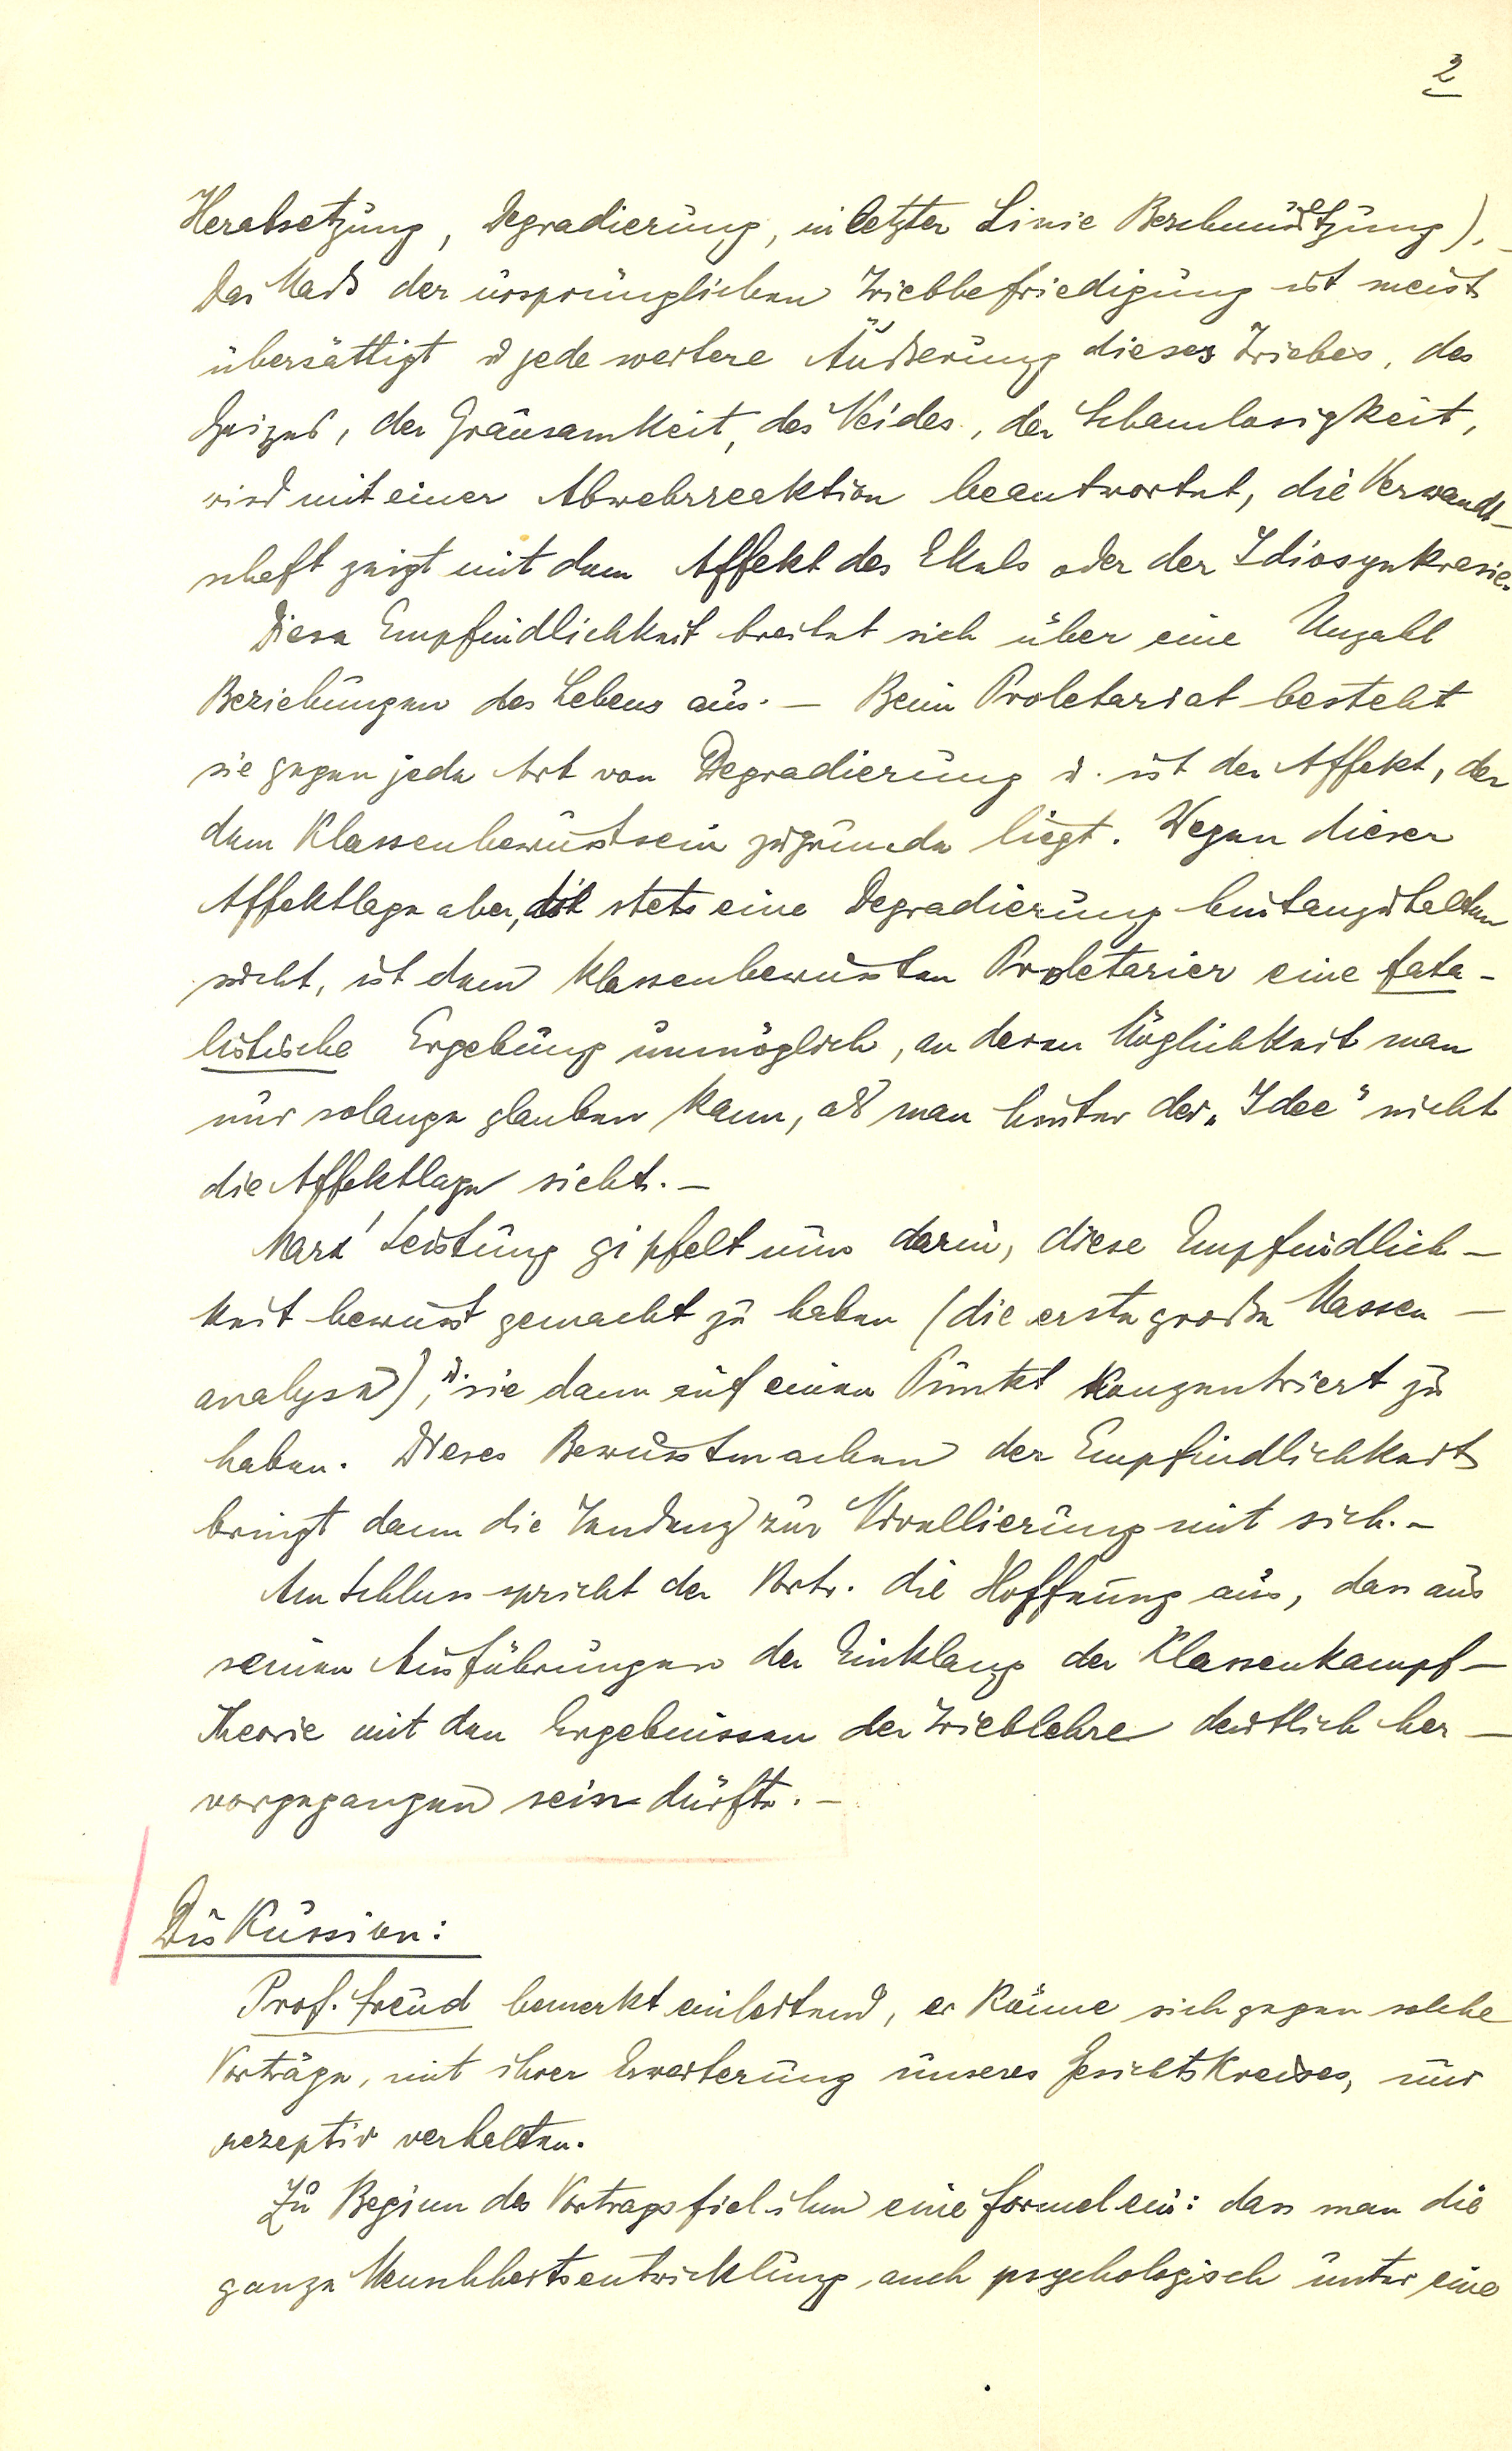 2
Herabsetzung, Degradierung, in letzter Linie Beschmutzung). –
Das Mass der ursprünglichen Triebbefriedigung ist meist
übersättigt u jede weitere Äusserung dieses Triebes, des
Geizes, der Grausamkeit, des Neides, der Schamlosigkeit,
wird mit einer Abwehrreaktion beantwortet, die Verwandt-
schaft zeigt mit dem Affekt des Ekels oder der Idiosynkrasie.
Diese Empfindlichkeit breitet sich über eine Unzahl
Beziehungen des Lebens aus. – Beim Proletariat besteht
sie gegen jede Art von Degradierung u. ist der Affekt, der
dem Klassenbewusstsein zugrunde liegt. Wegen dieser
Affektlage aber, die stets eine Degradierung hintanzuhalten
sucht, ist dem klassenbewussten Proletarier eine fata-
listische Ergebung unmöglich, an deren Möglichkeit man
nur solange glauben kann, als man hinter der „Idee“ nicht
die Affektlage sieht. –
Marx' Leistung gipfelt nun darin, diese Empfindlich-
keit bewusst gemacht zu haben (die erste grosse Massen-
analyse), u. sie dann auf einen Punkt konzentriert zu
haben. Dieses Bewusstmachen der Empfindlichkeit
bringt dann die Tendenz zur Nivellierung mit sich. –
Am Schluss spricht der Vortr. die Hoffnung aus, dass aus
seinen Ausführungen der Einklang der Klassenkampf-
Theorie mit den Ergebnissen der Trieblehre deutlich her-
vorgegangen sein dürfte. –
Diskussion:
Prof. Freud bemerkt einleitend, er könne sich gegen solche
Vorträge, mit ihrer Erweiterung unseres Gesichtskreises, nur
rezeptiv verhalten.
Zu Beginn des Vortrags fiel ihm eine Formel ein: dass man die
ganze Menschheitsentwicklung auch psychologisch unter eine